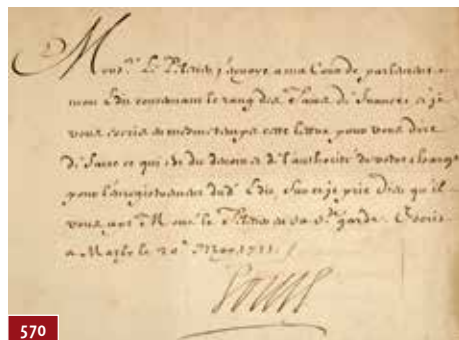 Mons.r Le P.Etier j'envoye a ma Cour de parlement
mon Edit concernant le rang des Pairs de France et je
vous écris en mesme temps cette lettre pour vous dire
de faire ce qui est du devoir et de l'authorité de votre charge
pour l'enregistrement dud. Edit, Sur ce je prie Dieu qu'il
vous ayt Mons.r le en sa s.te garde. Escrit
a Marly le 20.e May 1711.
Louis
570